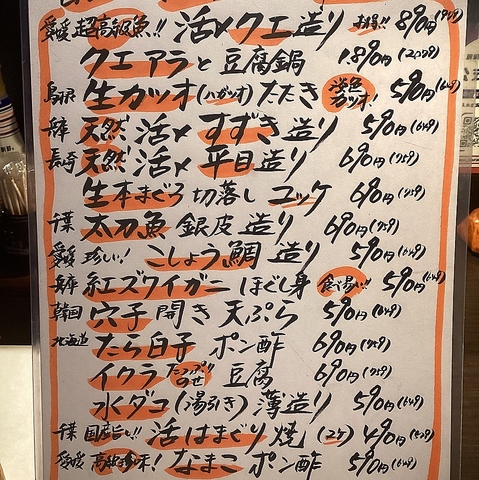 愛媛 超高級魚!! 活〆クエ造り 890円(979)
クエアラと豆腐鍋 1.890円(2079)
鳥取 生カツオ(ハガツオ)たたき 淡色カツオ! 590円(649)
兵庫 天然活〆すずき造り 590円(649)
長崎 天然活〆平目造り 690円(759)
生本まぐろ切落しユッケ 690円(759)
千葉 太刀魚銀皮造り 690円(759)
愛媛 珍しい! こしょう鯛造り 590円(649)
兵庫 紅ズワイガニほぐし身 590円(649)
韓国 穴子開き天ぷら 590円(649)
北海道 たら白子ポン酢 690円(759)
イクラたっぷりのせ豆腐 690円(759)
水ダコ(湯引き)薄造り 590円(649)
千葉 国産旨し!! 活はまぐり焼(2ケ) 490円(539)
愛媛 高級珍味! なまこポン酢 590円(649)